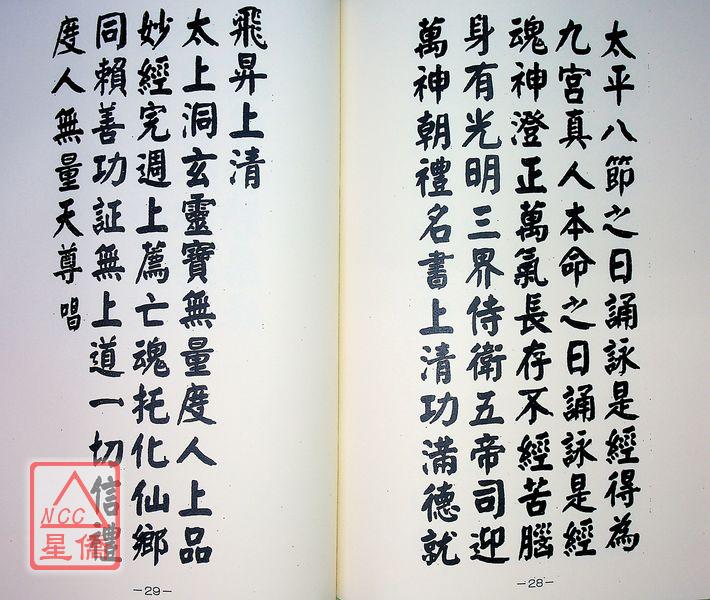 太平八節之日誦詠是經得為
九宮真人本命之日誦詠是經
魂神澄正萬氣長存不經苦腦
身有光明三界侍衛五帝司迎
萬神朝禮名書上清功滿德就
-28-
飛昇上清
太上洞玄靈寶無量度人上品
妙經完週上薦亡魂托化仙鄉
同賴善功証無上道一切信禮
度人無量天尊 唱
-29-
NCC
星僑